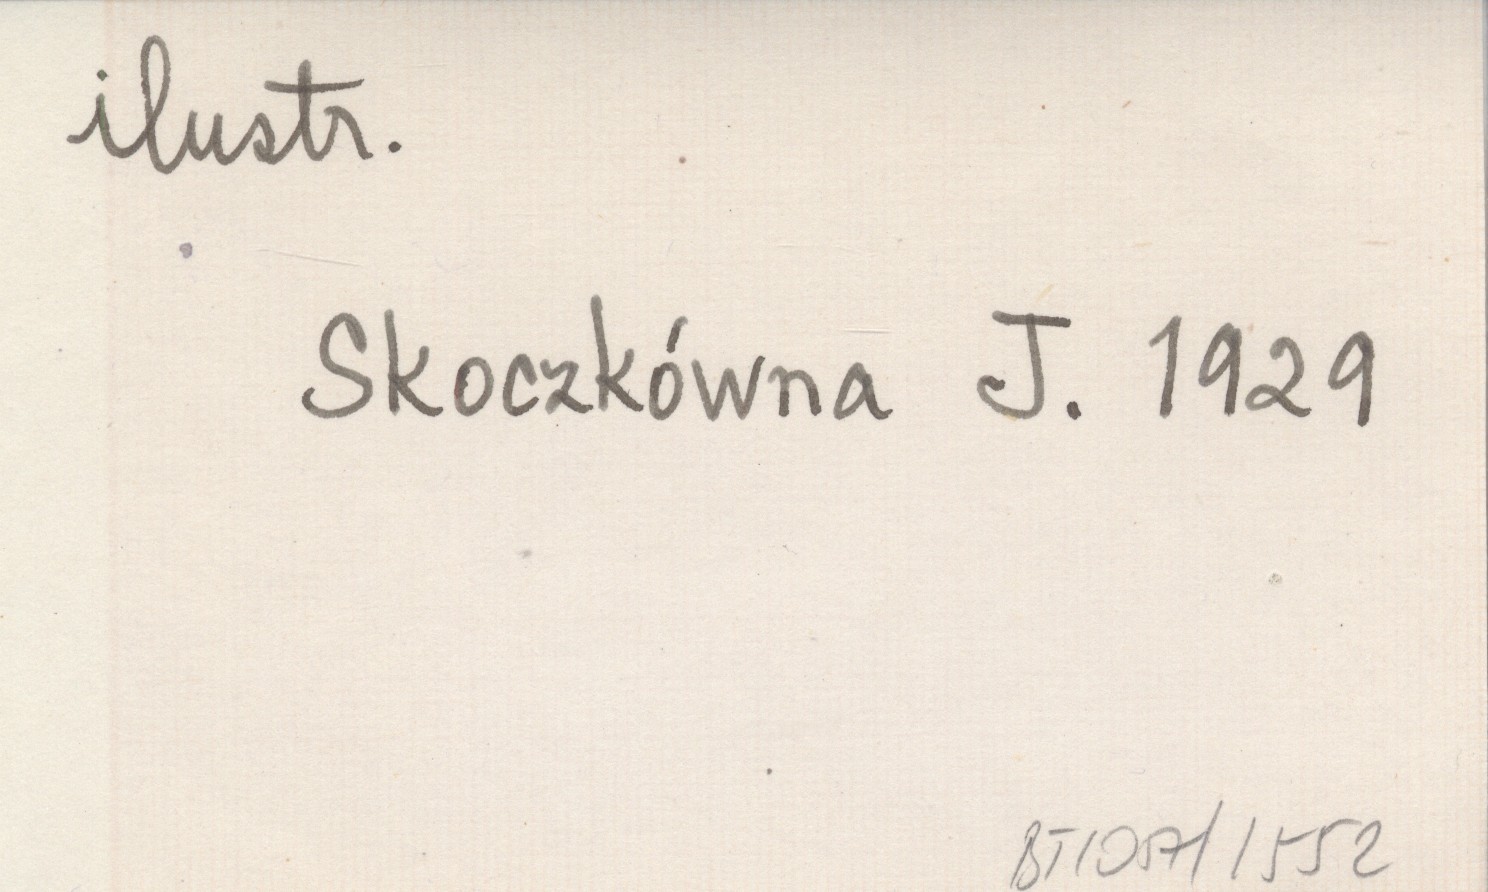 ilustr.
Skoczkówna J. 1929
BT/057/1552